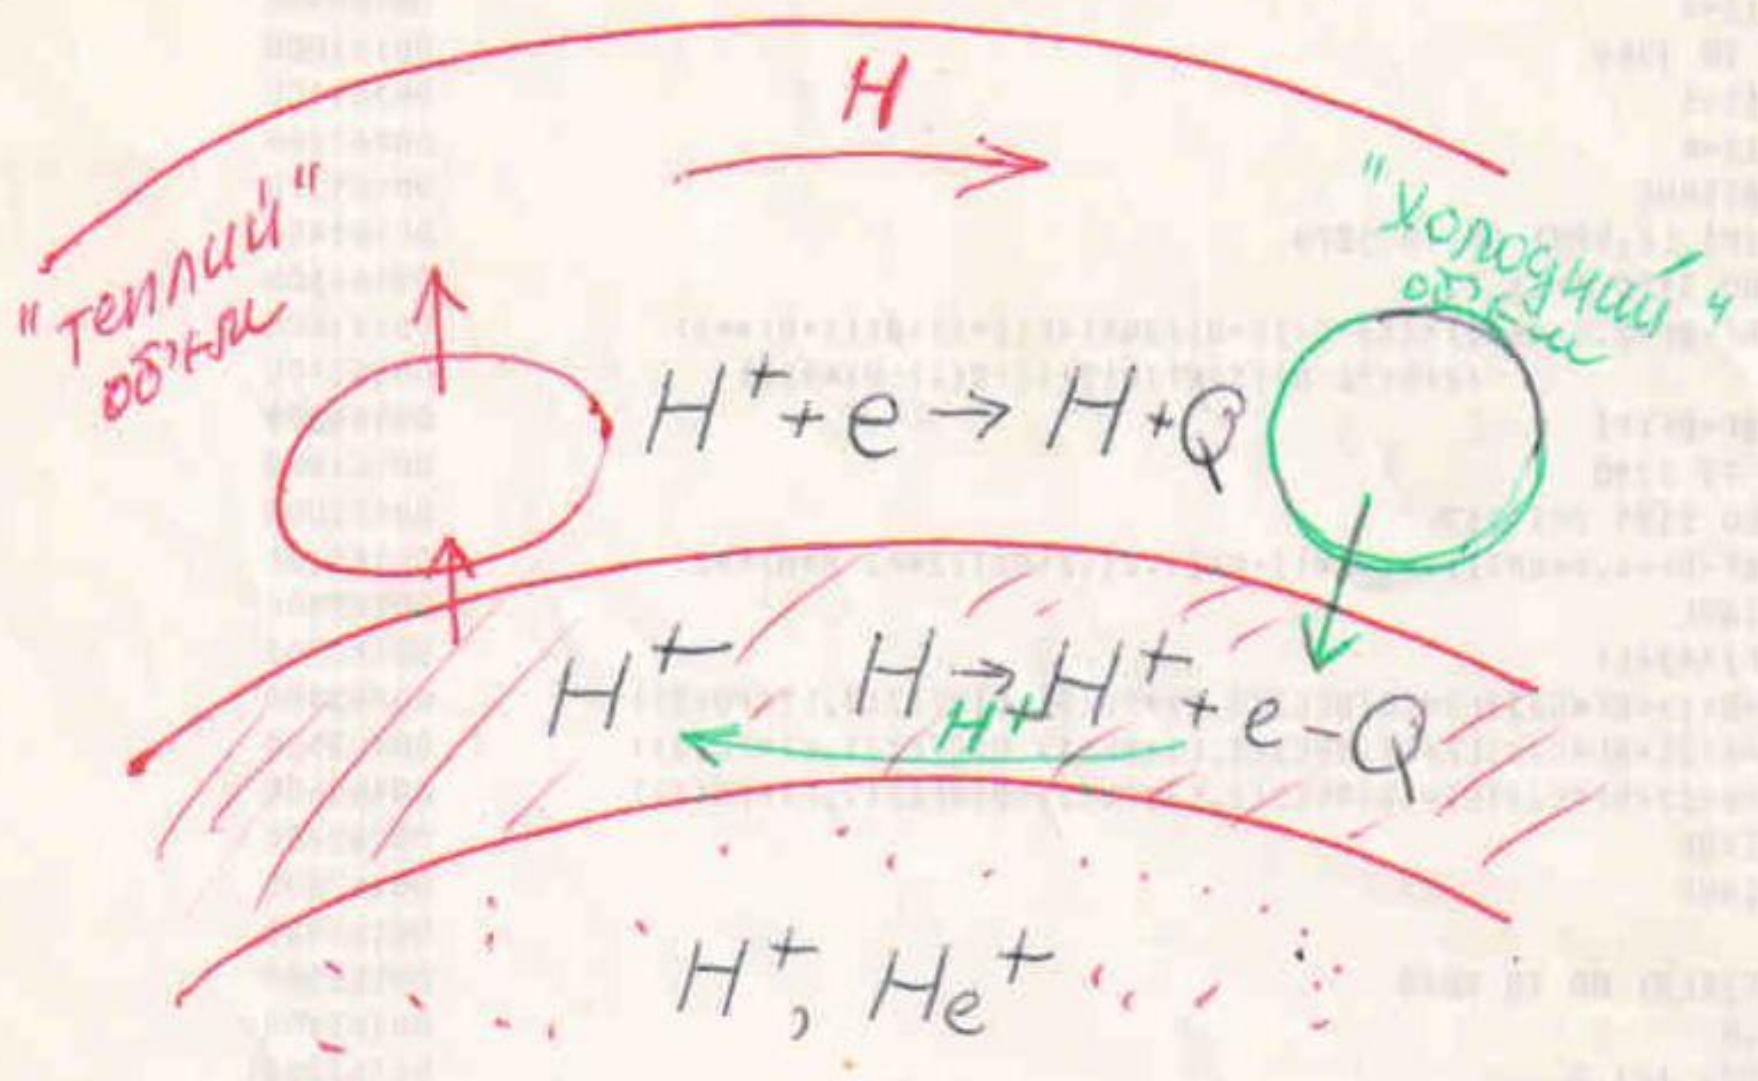 H
"теплий"
об'єм
"холодний"
об'єм
H⁺ + e → H + Q
H⁺ H → H⁺ + e − Q
H⁺
H⁺, He⁺